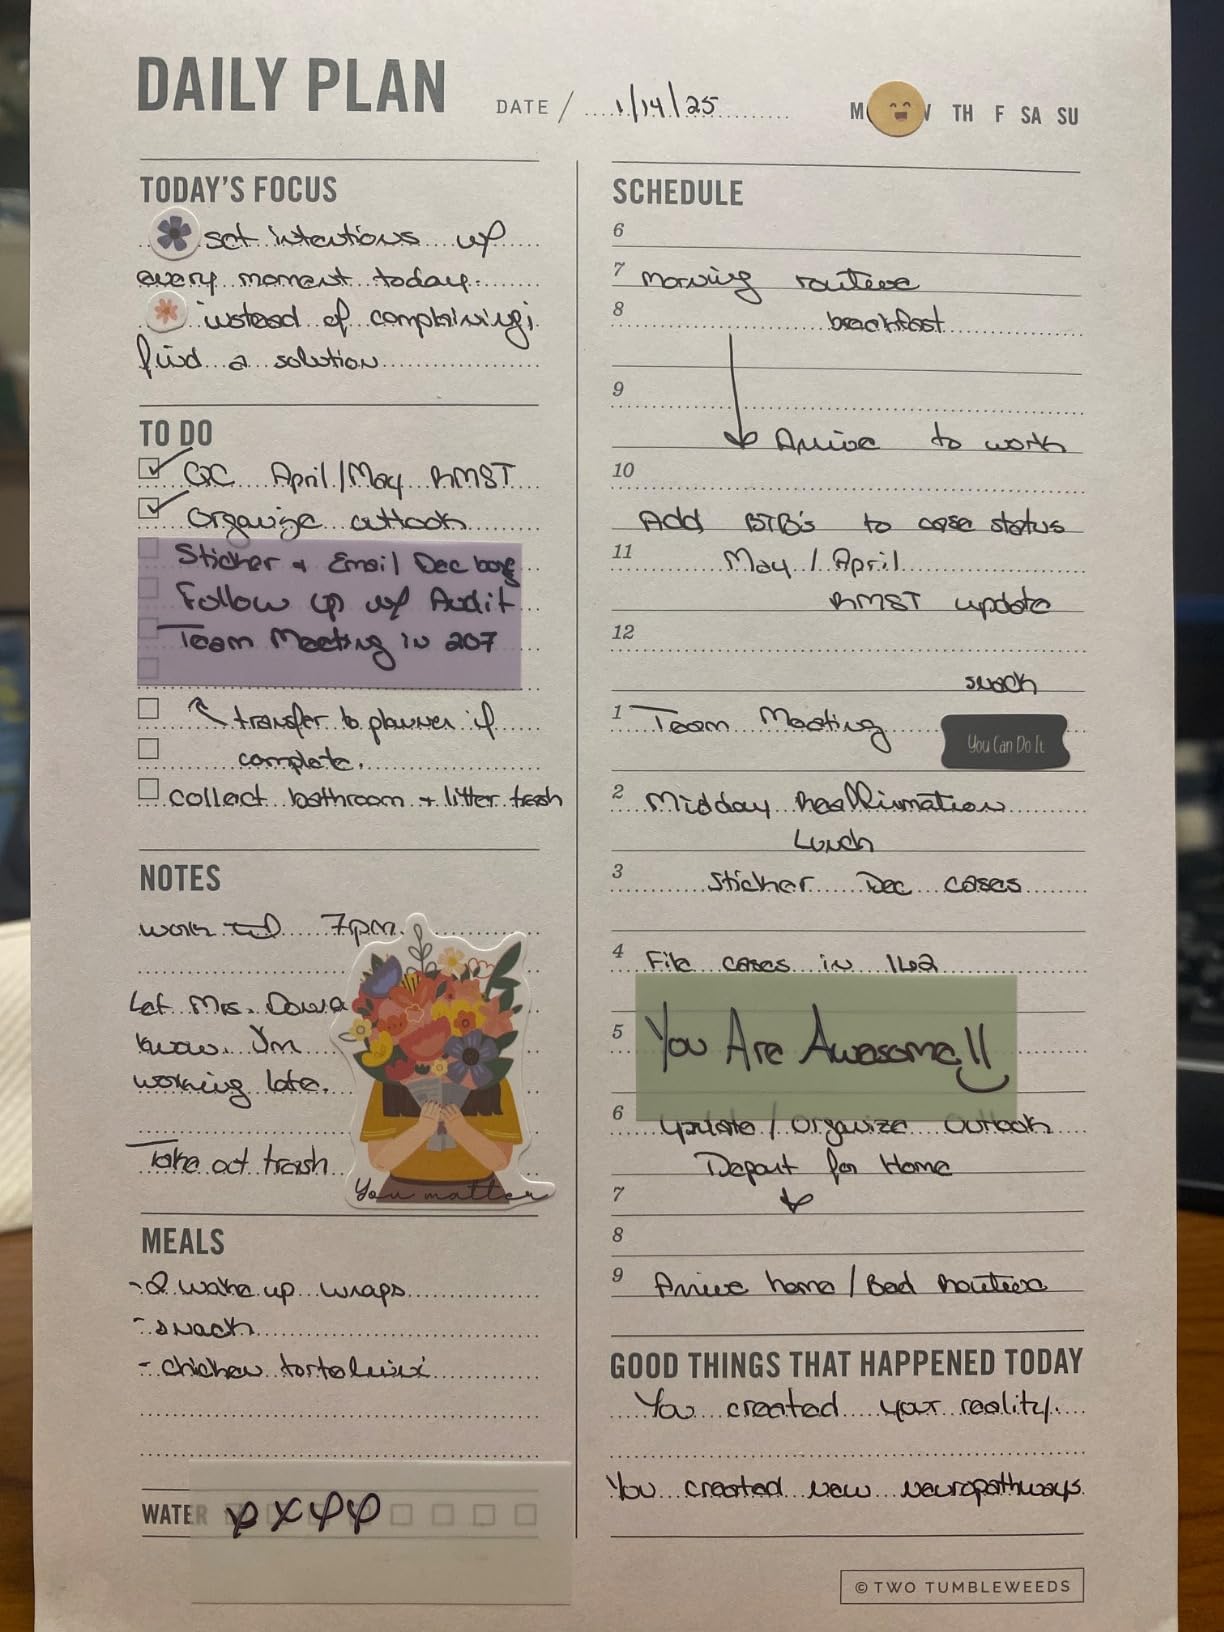 DAILY PLAN
DATE / 1/14/25
M W TH F SA SU
TODAY'S FOCUS
set intentions w/
every moment today.
instead of complaining;
find a solution
TO DO
QC April/May RMST
Organize outlook
Sticker & Email Dec
Follow up w/ Audit
Team Meeting in 207
transfer to planner if
complete.
collect bathroom + litter trash
NOTES
work til 7pm.
Let Mrs.
know I'm
working late.
Take out trash
You matter
MEALS
-2 wake up wraps
- snack
- chicken tortellini
WATER
SCHEDULE
6
7 Morning routine
8 breakfast
9
Arrive to work
10
Add BTB's to case status
11 May / April
RMST update
12
snack
1 Team Meeting
You Can Do It
2 Midday Reaffirmation
Lunch
3 Sticker Dec cases
4 File cases in 162
5 You Are Awesome!!
6 Update / Organize Outlook
Depart for Home
7
8
9 Arrive home / Bed Routine
GOOD THINGS THAT HAPPENED TODAY
You created your reality.
You created new neuropathways
© TWO TUMBLEWEEDS